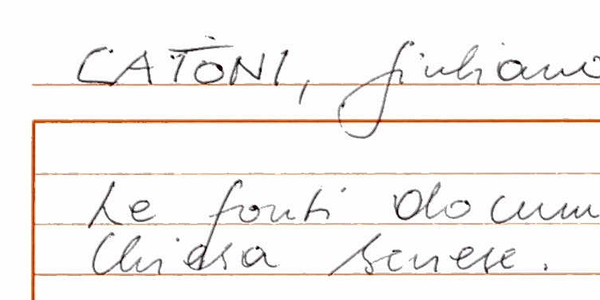 CATONI, Giuliano
Le fonti docum
Chiesa senese.